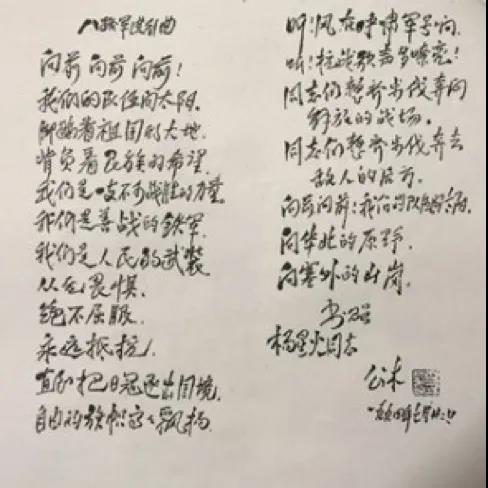 八路军进行曲
向前 向前 向前！
我们的队伍向太阳，
脚踏着祖国的大地，
背负着民族的希望，
我们是一支不可战胜的力量。
我们是善战的铁军，
我们是人民的武装，
从无畏惧，
绝不屈服，
永远抵抗，
直到把日寇逐出国境，
自由的旗帜高高飘扬。
听！风在呼啸军号响，
听！抗战歌声多嘹亮！
同志们整齐步伐奔向
解放的战场，
同志们整齐步伐奔去
敌人的后方，
向前向前！我们的队伍向太阳，
向华北的原野，
向塞外的山岗。
书现
杨星火同志
公木